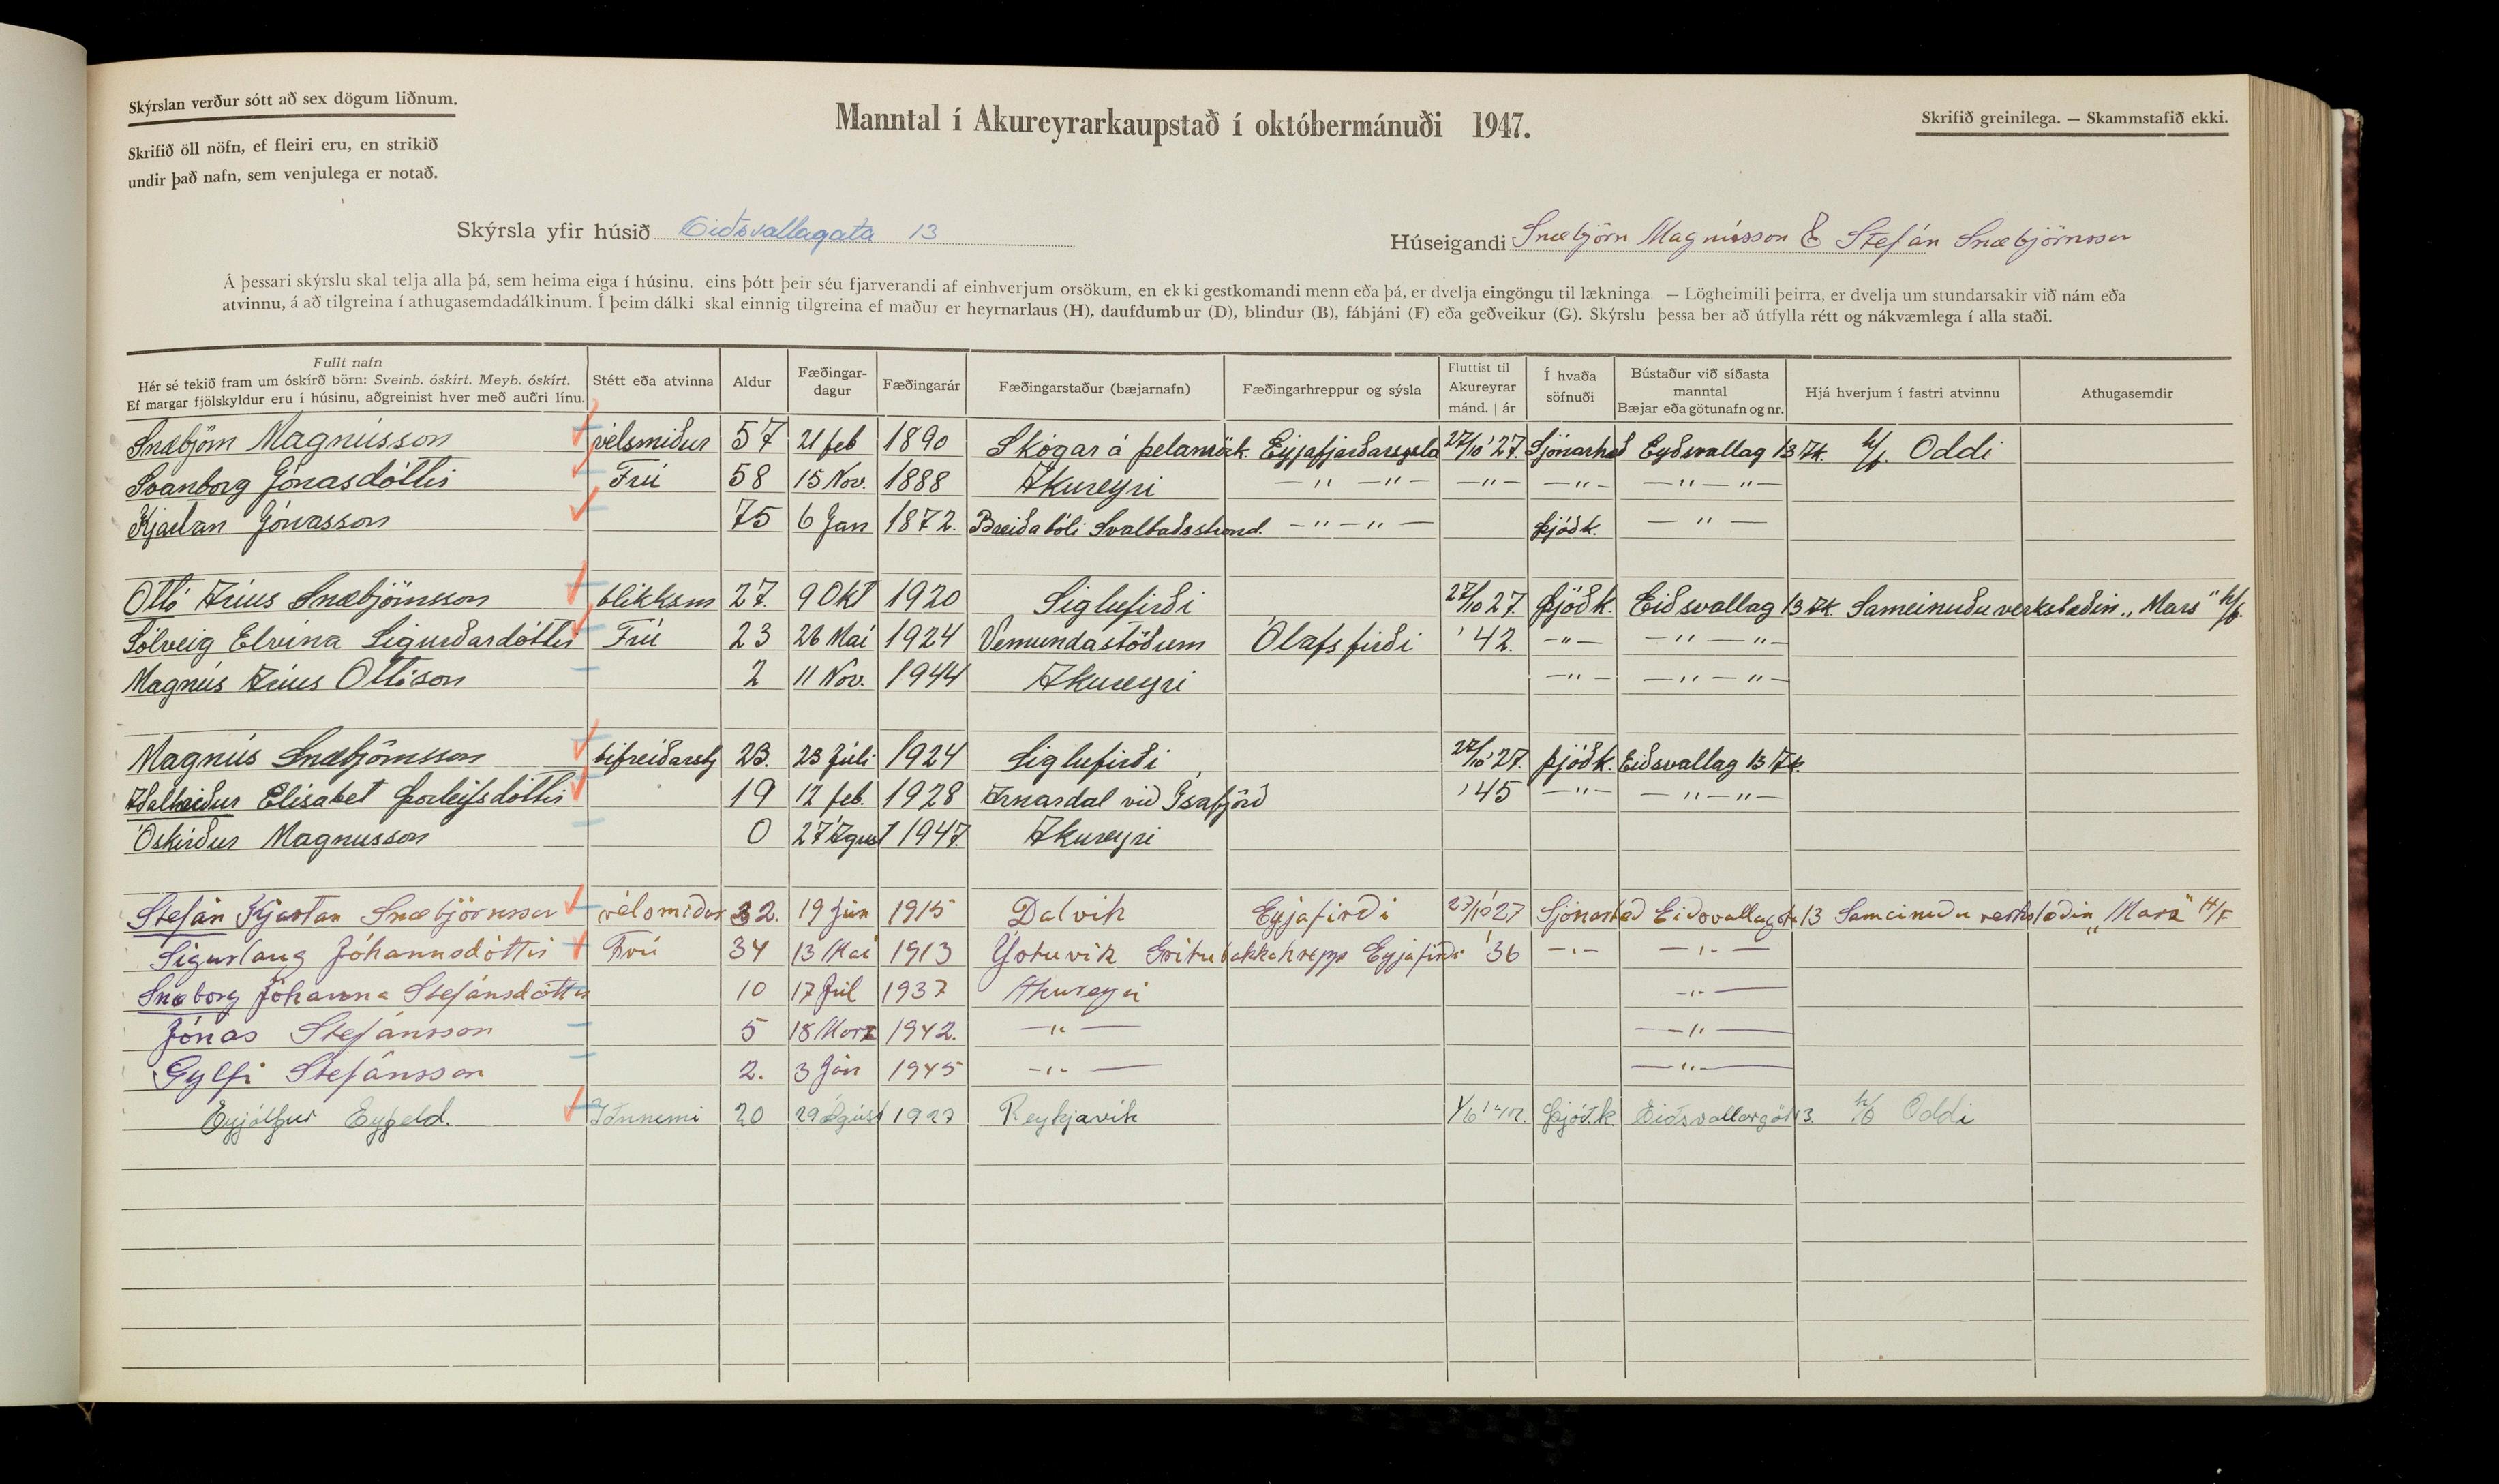 Skýrslan verður sótt að sex dögum liðnum.
Manntal í Akureyrarkaupstað í októbermánuði 1947.
Skrifið greinilega. — Skammstafið ekki.
Skrifið öll nöfn, ef fleiri eru, en strikið
undir það nafn, sem venjulega er notað.
Skýrsla yfir húsið Eiðsvallagata 13
Húseigandi Snæbjörn Magnússon & Stefán Snæbjörnsson
Á þessari skýrslu skal telja alla þá, sem heima eiga í húsinu, eins þótt þeir séu fjarverandi af einhverjum orsökum, en ekki gestkomandi menn eða þá, er dvelja eingöngu til lækninga. — Lögheimili þeirra, er dvelja um stundarsakir við nám eða
atvinnu, á að tilgreina í athugasemdadálkinum. Í þeim dálki skal einnig tilgreina ef maður er heyrnarlaus (H), daufdumbur (D), blindur (B), fábjáni (F) eða geðveikur (G). Skýrslu þessa ber að útfylla rétt og nákvæmlega í alla staði.
Fullt nafn
Hér sé tekið fram um óskírð börn: Sveinb. óskírt. Meyb. óskírt.
Ef margar fjölskyldur eru í húsinu, aðgreinist hver með auðri línu.
Stétt eða atvinna
Aldur
Fæðingar-
dagur
Fæðingarár
Fæðingarstaður (bæjarnafn)
Fæðingarhreppur og sýsla
Fluttist til
Akureyrar
mánd. | ár
Í hvaða
söfnuði
Bústaður við síðasta
manntal
Bæjar eða götunafn og nr.
Hjá hverjum í fastri atvinnu
Athugasemdir
Snæbjörn Magnússon vélsmiður 57 21 feb 1890 Skógar á þelamörk. Eyjafjarðarsysla 27/10 '27. Sjónarhæð Eyðsvallag 13 Ak. h/f. Oddi
Svanborg Jónasdóttir Frú 58 15 Nov. 1888 Akureyri —"—"— —"— —"— —"—"—
Kjartan Jónasson 75 6 Jan 1872. Breiðabóli Svalbaðsstrond. —"—"— þjóðk. —"—
Ottó Arius Snæbjörnsson blikksm 27. 9 Okt 1920 Siglufirði 27/10 27. þjóðk. Eiðsvallag 13 Ak. Sameinuðu verkstæðin „Mars" h/f.
Sólveig Elvina Sigurðardóttir Frú 23 26 Mai 1924 Vemundastöðum Ólafsfirði '42. —"— —"—"—
Magnús Arius Ottóson 2 11 Nov. 1944 Akureyri —"— —"—"—
Magnús Snæbjörnsson bifreiðarstj 23. 23 Júli 1924 Siglufirði 27/10 '27. þjóðk. Eiðsvallag 13 Ak.
Aðalheiður Elísabet Þorleifsdóttir 19 12 feb. 1928 Arnardal við Ísafjörð '45 —"— —"—"—
Óskírður Magnusson 0 27 Águst 1947. Akureyri
Stefán Kjartan Snæbjörnsson vélsmiður 32. 19 Jún 1915 Dalvik Eyjafirði 27/10 '27 Sjónarhæð Eiðsvallagata 13 Sameinuðu verkstæðin „Mars" H/F
Sigurlaug Jóhannsdóttir Frú 34 13 Mai 1913 Götuvik Grítubakkahrepp Eyjafirði '36 —"— —"—
Snæborg Jóhanna Stefánsdóttir 10 17 Júl 1937 Akureyri —"—
Jónas Stefánsson 5 18 Mars 1942. —"— —"—
Gylfi Stefánsson 2. 3 Jan 1945 —"— —"—
Eyjólfur Eyfeld. Iðnnemi 20 29 Ágúst 1927 Reykjavík 1/6 1942. Þjóð.k. Eiðsvallargöt 13. Oddi